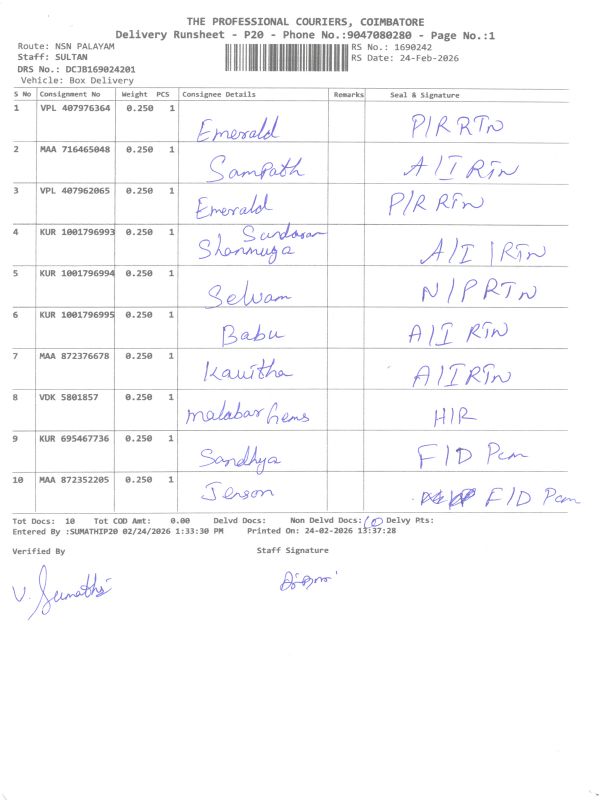 THE PROFESSIONAL COURIERS, COIMBATORE
Delivery Runsheet - P20 - Phone No.:9047080280 - Page No.:1
Route: NSN PALAYAM RS No.: 1690242
Staff: SULTAN RS Date: 24-Feb-2026
DRS No.: DCJB169024201
Vehicle: Box Delivery
S No Consignment No Weight PCS Consignee Details Remarks Seal & Signature
1 VPL 407976364 0.250 1 Emerald P/R RTn
2 MAA 716465048 0.250 1 Sampath A/I RTn
3 VPL 407962065 0.250 1 Emerald P/R RTn
4 KUR 1001796993 0.250 1 Shanmuga Sundaram A/I RTN
5 KUR 1001796994 0.250 1 Selvam N/P RTN
6 KUR 1001796995 0.250 1 Babu A/I RTN
7 MAA 872376678 0.250 1 Kavitha A/I RTN
8 VDK 5801857 0.250 1 malabar Gems H/R
9 KUR 695467736 0.250 1 Sandhya F/D Pcm
10 MAA 872352205 0.250 1 Jerson F/D Pcm
Tot Docs: 10 Tot COD Amt: 0.00 Delvd Docs: Non Delvd Docs: 10 Delvy Pts:
Entered By :SUMATHIP20 02/24/2026 1:33:30 PM Printed On: 24-02-2026 13:37:28
Verified By Staff Signature
V. Sumathi